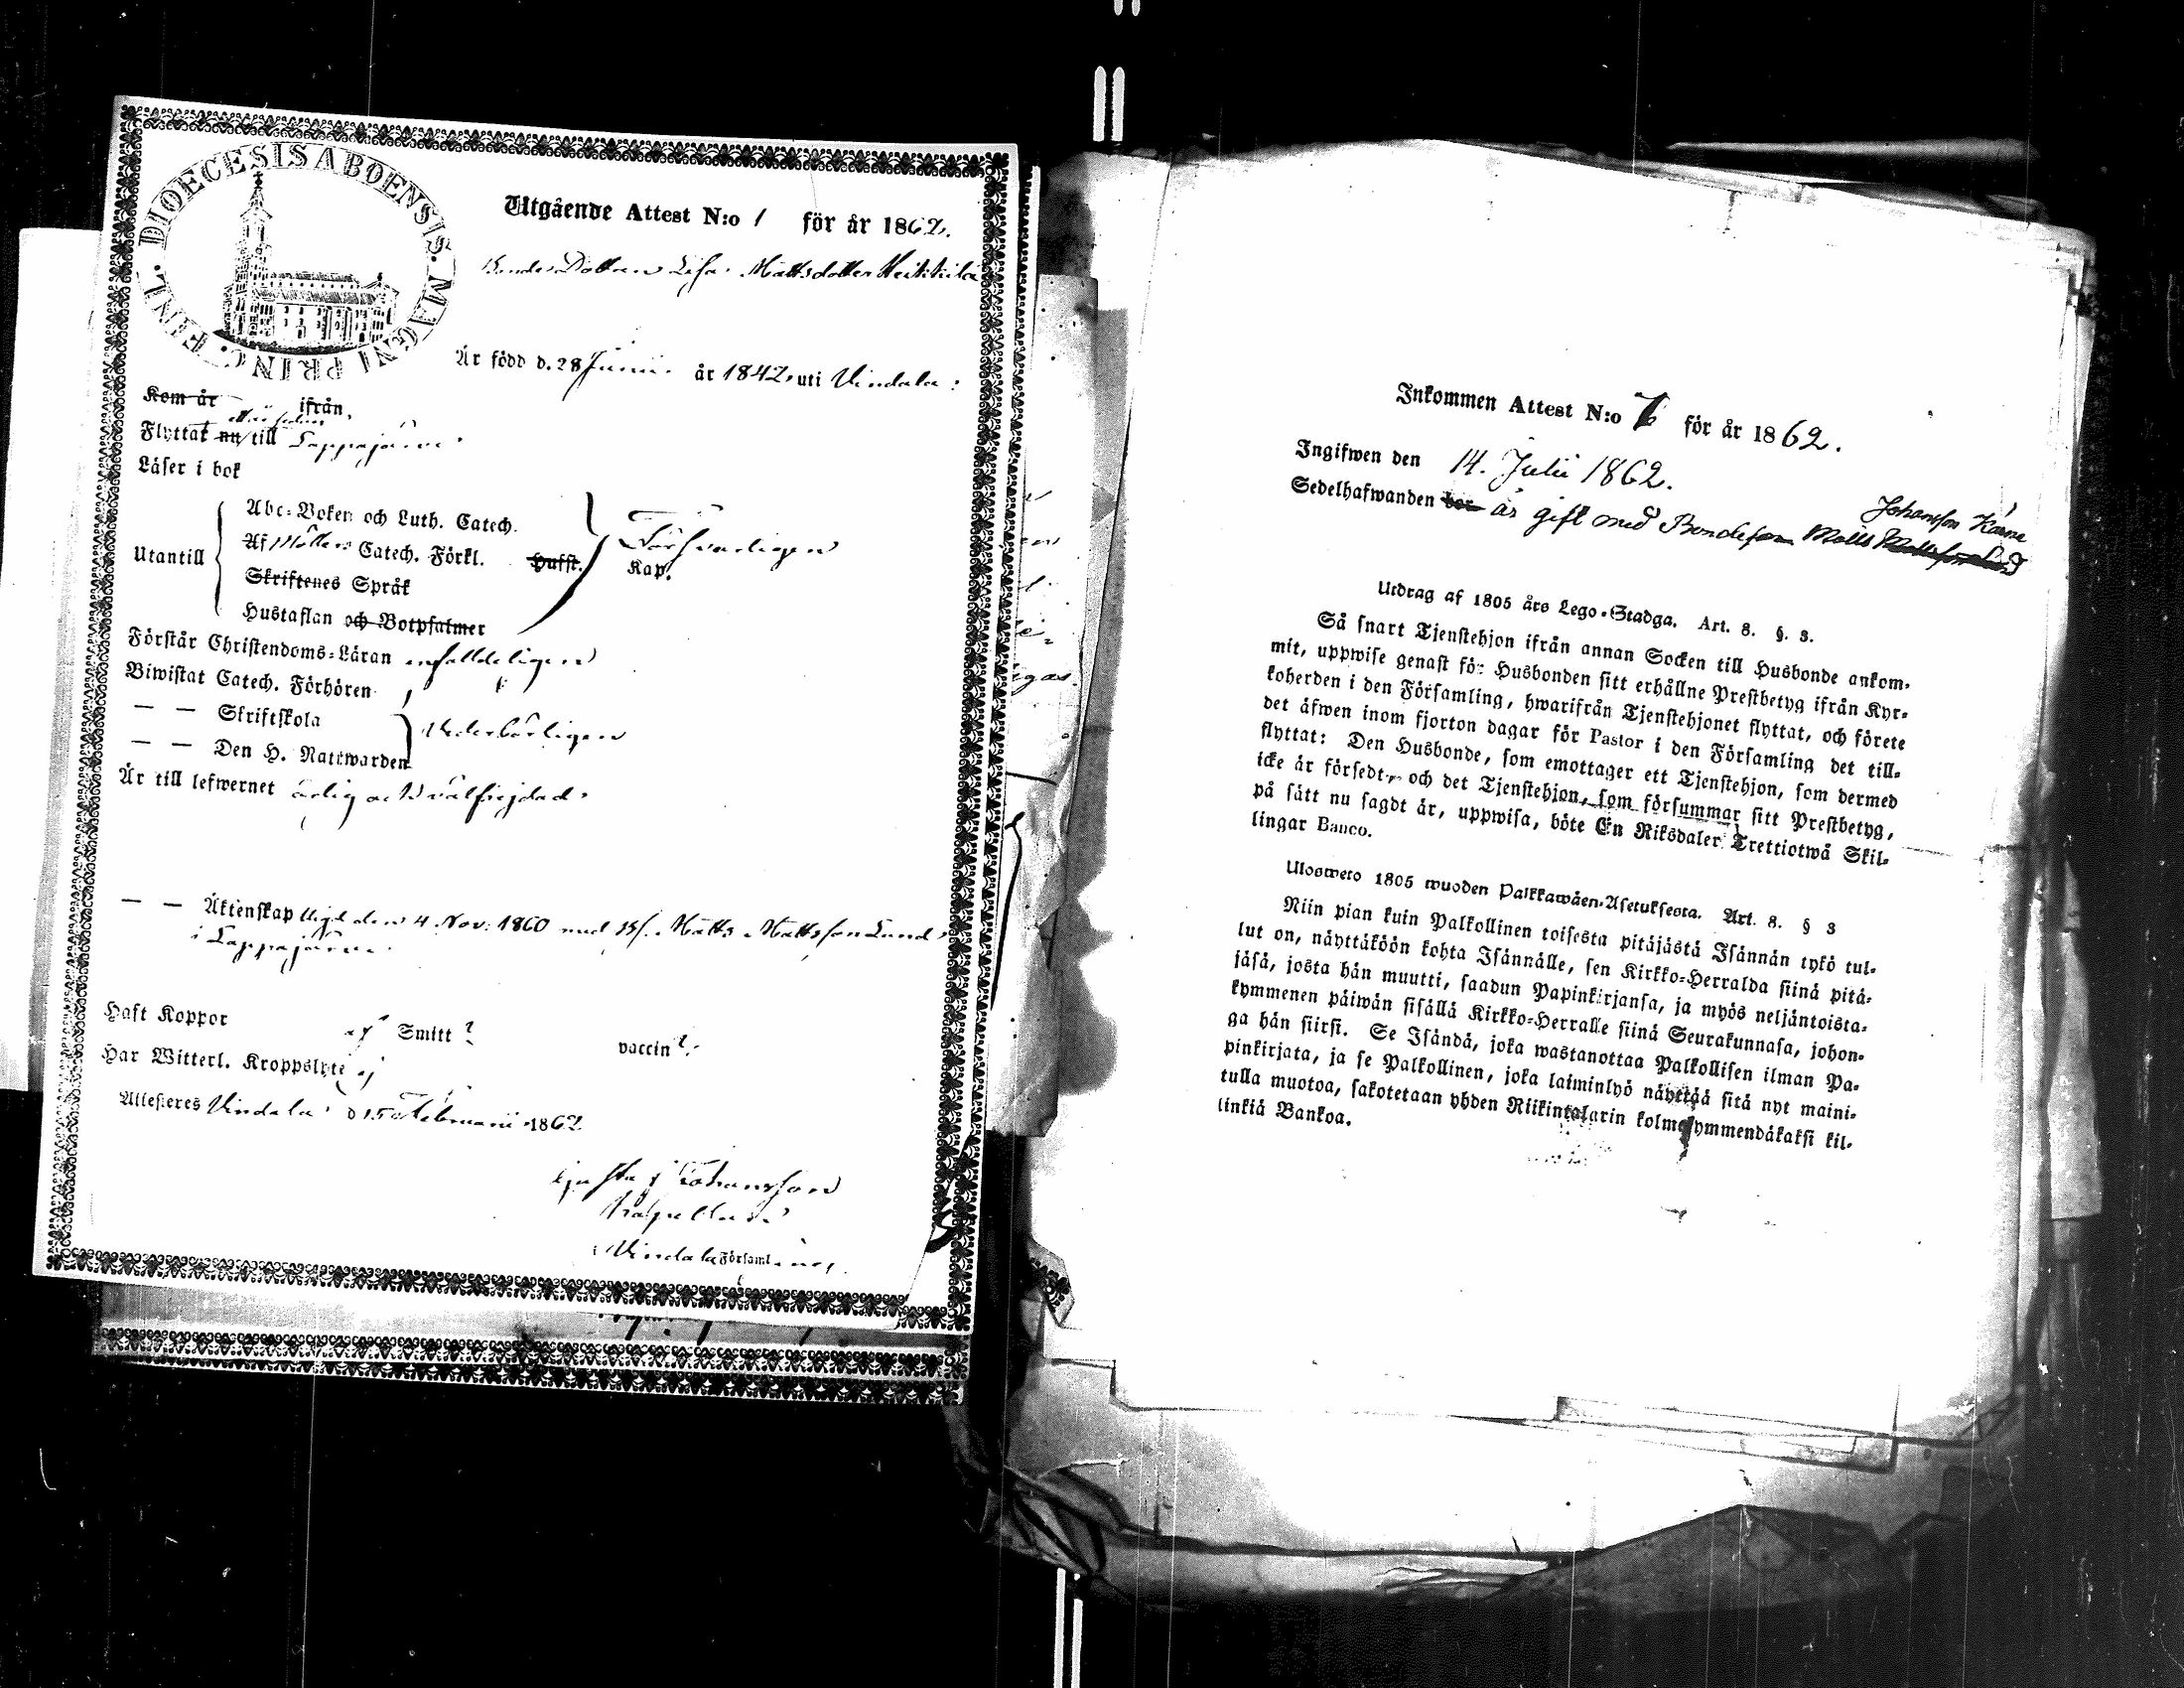 DIOECESIS ABOENSIS. MAGNI PRINC. FINL.
Utgående Attest N:o 1 för år 1862.
Bonde Dottren Lisa Mattsdotter Heikkilä
Är född d. 28 Junii år 1842 uti Vindala:
Kom år ifrån,
Flyttat nu till Lappajärvi
Läser i bok
Utantill
Abc-Boken och Luth. Catech.
Af Möllers Catech. Förkl. Husst. Kap. Försvarligen
Skriftenes Språk
Hustaflan och Botpsalmer
Förstår Christendoms-Läran enfalldeligen
Biwistat Catech. Förhören
— — Skriftskola
Vederbörligen
— — Den H. Nattwarden
Är till lefwernet ärlig och välfrejdad.
— — Äktenskap vigd den 4 Nov: 1860 med Bs. Matts Mattsson Lund
i Lappajärvi.
Haft Koppor af Smitt ? vaccin ?
Har Witterl. Kroppslyte ej
Attesteres Vindala d 15 Februarii 1862
Gusta J Johansson
Kapellan
i Vindala Församling.
Inkommen Attest N:o 7 för år 1862.
Ingifwen den 14. Julii 1862.
Johansson Kärnä
Sedelhafwanden bor är gift med Bondeson Matts Mattsson Lund
Utdrag af 1805 års Lego-Stadga. Art. 8. §. 3.
Så snart Tjenstehjon ifrån annan Socken till Husbonde ankom-
mit, uppwise genast för Husbonden sitt erhållne Prestbetyg ifrån Kyr-
koherden i den Församling, hwarifrån Tjenstehjonet flyttat, och förete
det äfwen inom fjorton dagar för Pastor i den Församling det till-
flyttat: Den Husbonde, som emottager ett Tjenstehjon, som dermed
icke är försedt, och det Tjenstehjon, som försummar sitt Prestbetyg,
på sätt nu sagdt är, uppwisa, böte En Riksdaler Trettiotwå Skil-
lingar Banco.
Ulosweto 1805 wuoden Palkkawäen-Asetuksesta. Art. 8. § 3
Niin pian kuin Palkollinen toisesta pitäjästä Isännän tykö tul-
lut on, näyttäköön kohta Isännälle, sen Kirkko-Herralda siinä pitä-
jäsä, josta hän muutti, saadun Papinkirjansa, ja myös neljäntoista-
kymmenen päiwän sisällä Kirkko-Herralle siinä Seurakunnasa, johon-
ga hän siirsi. Se Isändä, joka wastanottaa Palkollisen ilman Pa-
pinkirjata, ja se Palkollinen, joka laiminlyö näyttää sitä nyt maini-
tulla muotoa, sakotetaan yhden Riikintalarin kolmekymmendäkaksi kil-
linkiä Bankoa.